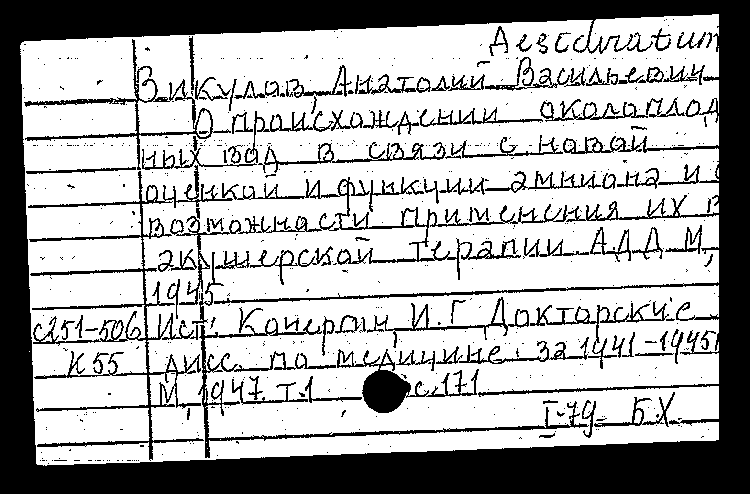 Desiduratum
Викулов, Анатолий Васильевич
О происхождении околоплод
ных вод в связи с новой
оценкой и функции амниона и о
возможности применения их в
акушерской терапии АДД М.,
1945.
с251-506 Ист: Кочергин, И.Г. Докторские
К55 дисс. по медицине за 1941-1945г
М., 1947. т.1 с.171
I-79 Б.Х.